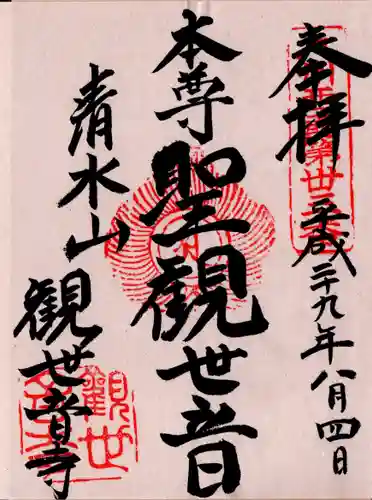 奉拝
平成二十九年八月四日
本尊
聖観世音
清水山
観世音寺